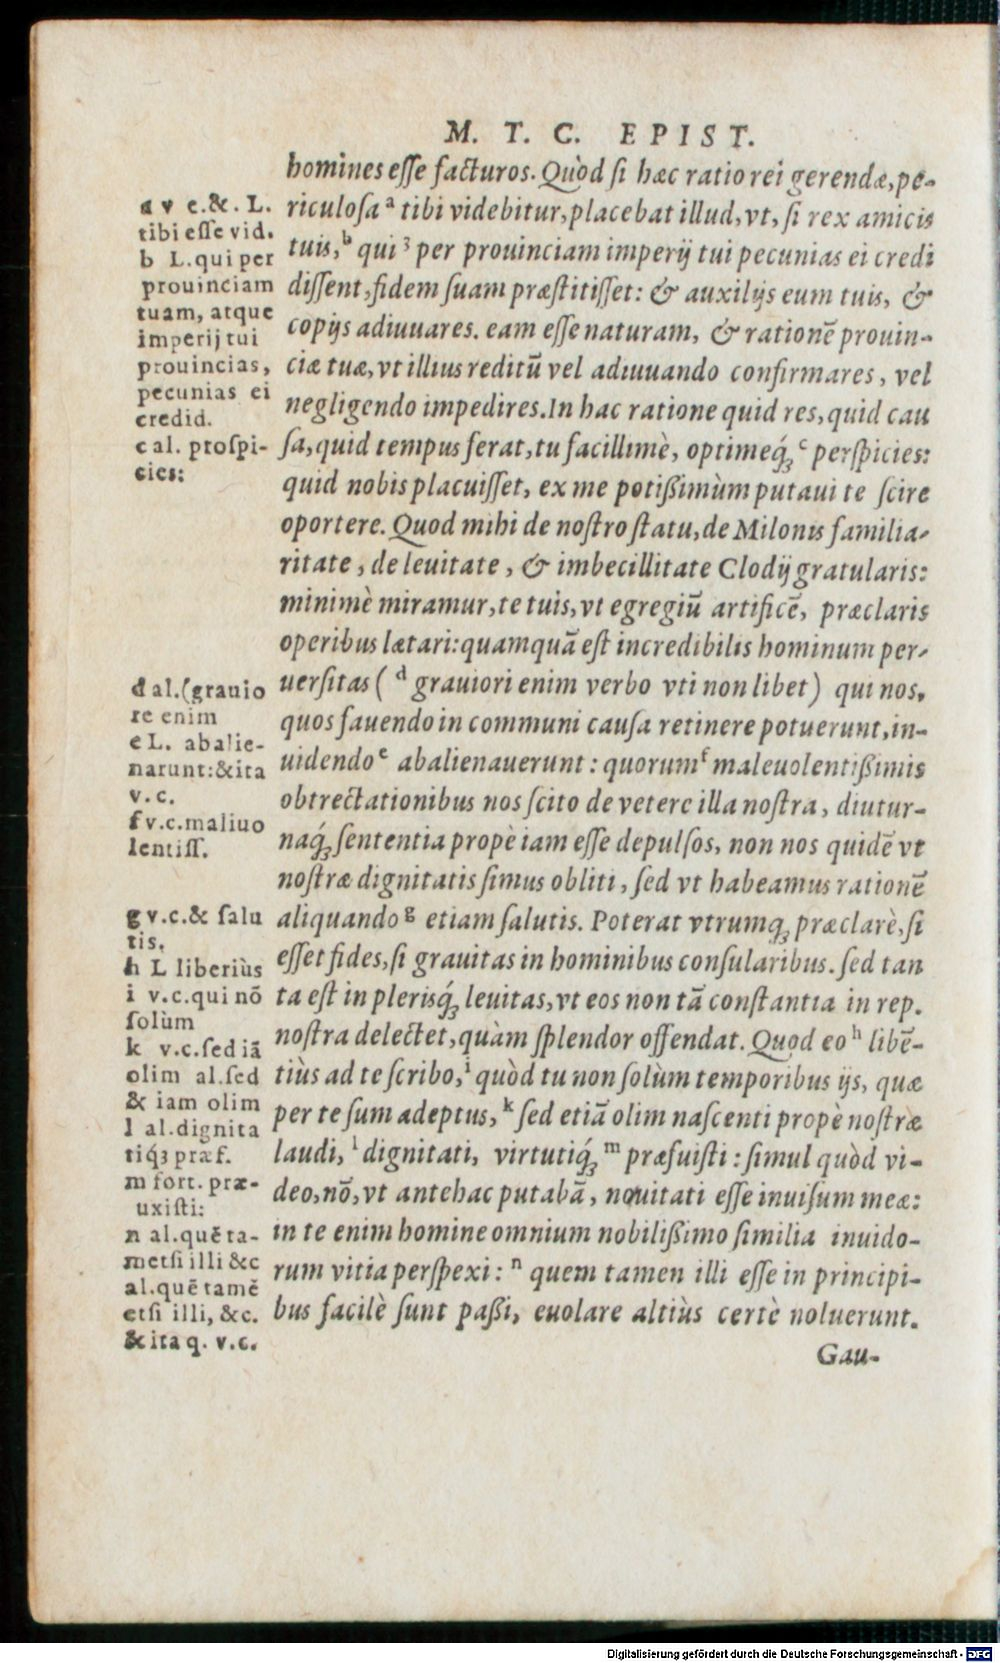 M. T. C. EPIST.
homines eſſe facturos. Quòd ſi hæc ratio rei gerendæ, pe-
riculoſa ᵃ tibi videbitur, placebat illud, vt, ſi rex amicis
tuis, ᵇ qui ³ per prouinciam imperij tui pecunias ei credi
diſſent, fidem ſuam præſtitiſſet: & auxilijs eum tuis, &
copijs adiuuares. eam eſſe naturam, & rationē prouin-
ciæ tuæ, vt illius reditū vel adiuuando confirmares, vel
negligendo impedires. In hac ratione quid res, quid cau
ſa, quid tempus ferat, tu facillimè, optimeq́ꝫ ᶜ perſpicies:
quid nobis placuiſſet, ex me potißimùm putaui te ſcire
oportere. Quod mihi de noſtro ſtatu, de Milonis familia-
ritate, de leuitate, & imbecillitate Clodij gratularis:
minimè miramur, te tuis, vt egregiū artificē, præclaris
operibus lætari: quamquā eſt incredibilis hominum per-
uerſitas ( ᵈ grauiori enim verbo vti non libet) qui nos,
quos fauendo in communi cauſa retinere potuerunt, in-
uidendo ᵉ abalienauerunt: quorum ᶠ maleuolentißimis
obtrectationibus nos ſcito de vetere illa noſtra, diutur-
naq́ꝫ ſententia propè iam eſſe depulſos, non nos quidē vt
noſtræ dignitatis ſimus obliti, ſed vt habeamus rationē
aliquando ᵍ etiam ſalutis. Poterat vtrumqꝫ præclarè, ſi
eſſet fides, ſi grauitas in hominibus conſularibus. ſed tan
ta eſt in plerisq́ꝫ leuitas, vt eos non tā conſtantia in rep.
noſtra delectet, quàm ſplendor offendat. Quod eo ʰ libē-
tiùs ad te ſcribo, ⁱ quòd tu non ſolùm temporibus ijs, quæ
per te ſum adeptus, ᵏ ſed etiā olim naſcenti propè noſtræ
laudi, ˡ dignitati, virtutiq́ꝫ ᵐ præfuiſti: ſimul quòd vi-
deo, nō, vt antehac putabā, nouitati eſſe inuiſum meæ:
in te enim homine omnium nobilißimo ſimilia inuido-
rum vitia perſpexi: ⁿ quem tamen illi eſſe in principi-
bus facilè ſunt paßi, euolare altiùs certè noluerunt.
Gau-
a v c. &. L.
tibi eſſe vid.
b L. qui per
prouinciam
tuam, atque
imperij tui
prouincias,
pecunias ei
credid.
c al. proſpi-
cies:
d al. (grauio
re enim
e L. abalie-
narunt: & ita
v. c.
f v. c. maliuo
lentiſſ.
g v. c. & ſalu
tis.
h L liberiùs
i v. c. qui nō
ſolùm
k v. c. ſed iā
olim al. ſed
& iam olim
l al. dignita
tiq́ꝫ præf.
m fort. præ-
uxiſti:
n al. quē ta-
metſi illi &c
al. quē tamē
etſi illi, &c.
& ita q. v. c.
Digitalisierung gefördert durch die Deutsche Forschungsgemeinschaft - DFG